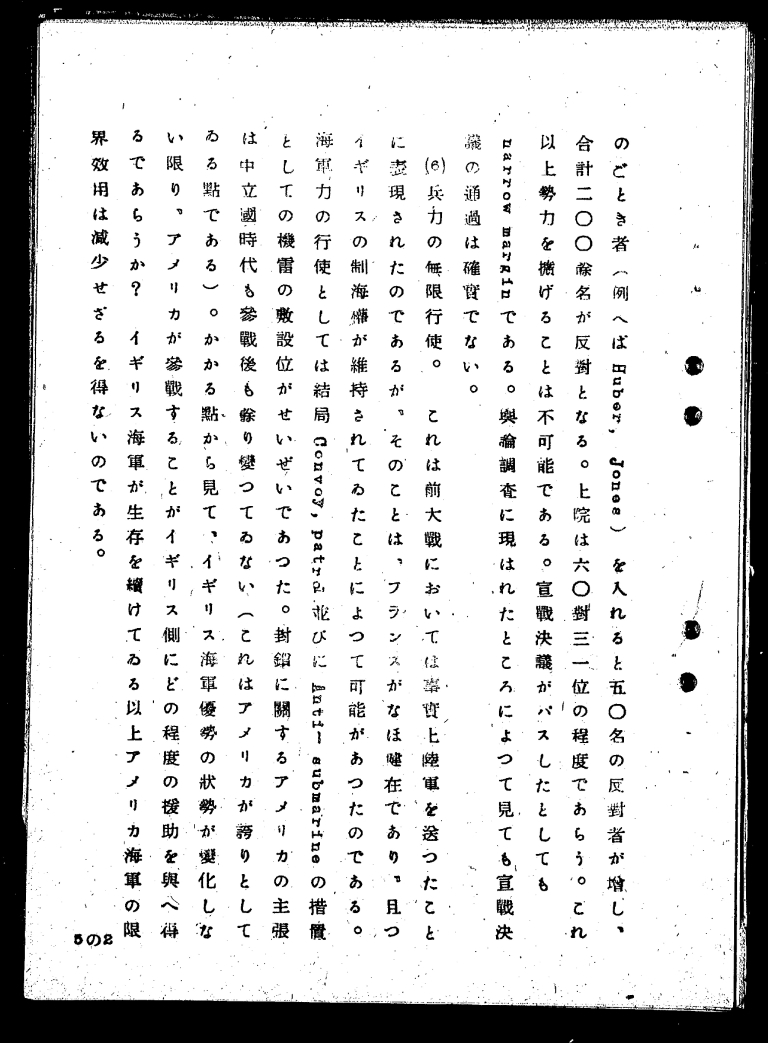 のごとき者（例へば Huber, Jones）を入れると五〇名の反對者が增し、
合計二〇〇餘名が反對となる。上院は六〇對三一位の程度であらう。これ
以上勢力を擴げることは不可能である。宣戰決議がパスしたとしても
narrow margin である。輿論調査に現はれたところによつて見ても宣戰決
議の通過は確實でない。
(6)兵力の無限行使。　これは前大戰においては事實上陸軍を送つたこと
に表現されたのであるが、そのことは、フランスがなほ健在であり、且つ
イギリスの制海權が維持されてゐたことによつて可能があつたのである。
海軍力の行使としては結局 Convoy, patrol 並びに Anti-submarine の措置
としての機雷の敷設位がせいぜいであつた。封鎖に關するアメリカの主張
は中立國時代も參戰後も餘り變つてゐない（これはアメリカが誇りとして
ゐる點である）。かかる點から見て、イギリス海軍優勢の狀勢が變化しな
い限り、アメリカが參戰することがイギリス側にどの程度の援助を與へ得
るであらうか？　イギリス海軍が生存を續けてゐる以上アメリカ海軍の限
界效用は減少せざるを得ないのである。
5の2